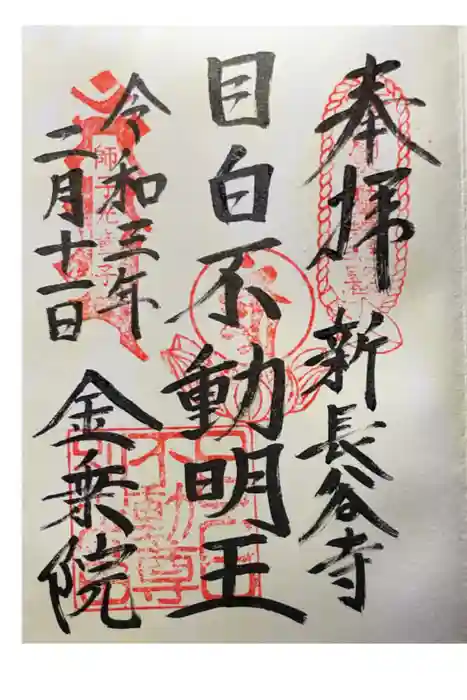 奉拝
新長谷寺
目白不動明王
令和三年
二月十一日
金乗院
不動尊